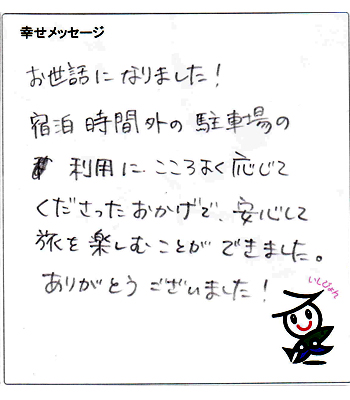 幸せメッセージ
お世話になりました！
宿泊時間外の駐車場の
利用に こころよく応じて
くださったおかげで、安心して
旅を楽しむことができました。
ありがとうございました！
いしぴょん